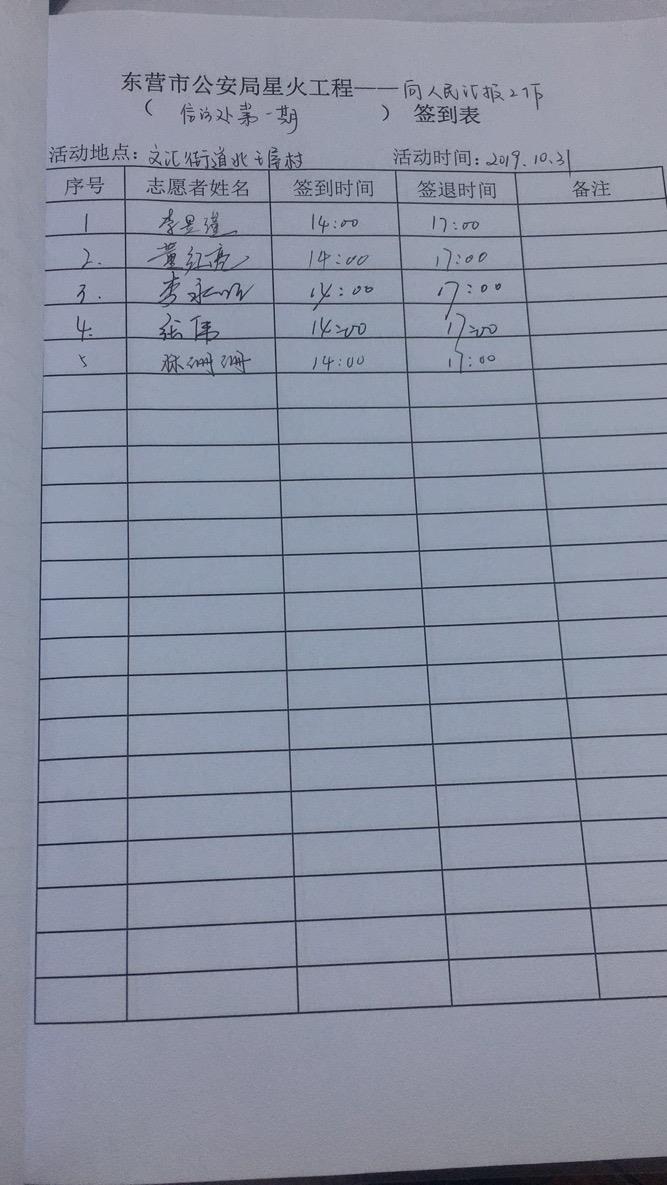 东营市公安局星火工程——向人民汇报工作
（ 信访处第一期 ） 签到表
活动地点：文汇街道北王屋村 活动时间：2019.10.31
序号 志愿者姓名 签到时间 签退时间 备注
1 李昱瑾 14:00 17:00
2. 董红亮 14:00 17:00
3. 李永 14:00 17:00
4. 张伟 14:00 17:00
5 徐珊珊 14:00 17:00